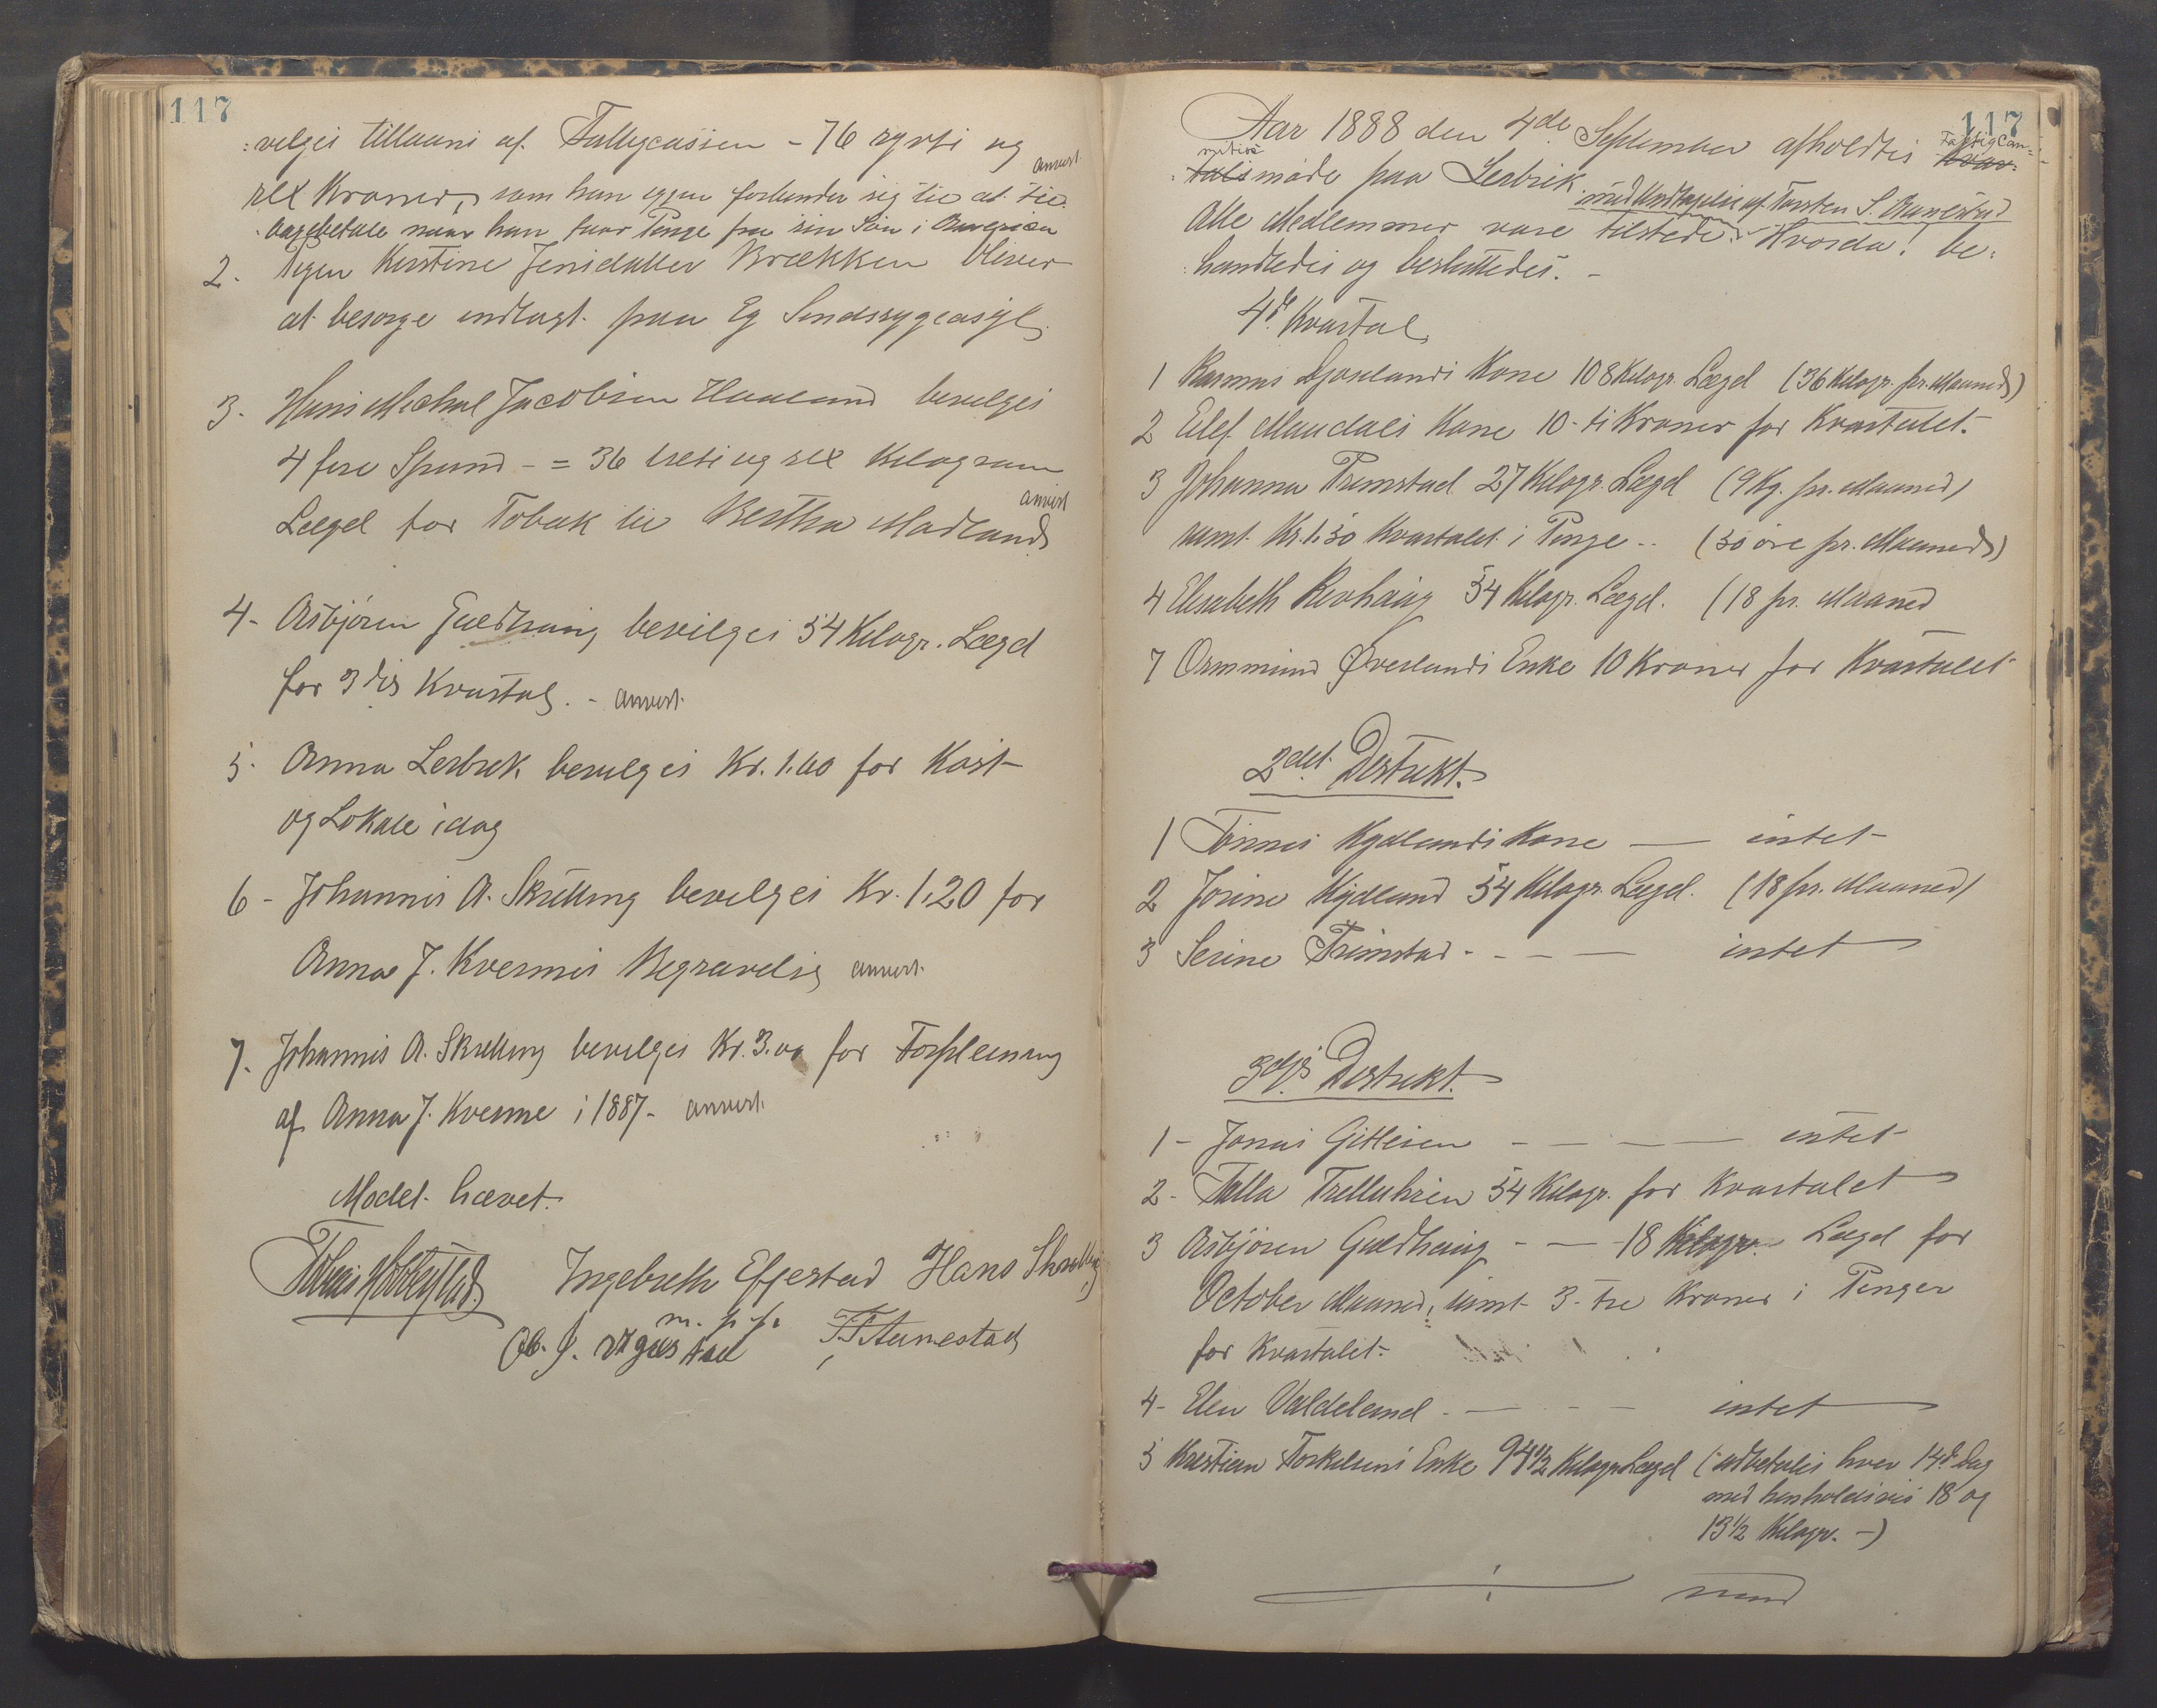 117
:velges tillaans af Fattigcassen - 76 sytti og
sex Kroner, som han igjen forbinder sig til at til- anvist
bagebetale naar han faar Penge fra sin Søn i Amerika
2. Pigen Kirstine Jensdatter Brækken bliver
at besørge indlagt paa Eg Sindssygeasyl
3. Hans Michal Jacobsen Haaland bevilges
4 fire Spand - = 36 treti og sex Kilogram
Lægd for Tobak til Bertha Madland anvist
4- Asbjørn Guldhaug bevilges 54 Kilogr. Lægd
for 3die Kvartal. - anvist.
5. Anna Lerbrek bevilges Kr. 1.60 for Kost
og Lokale idag
6 - Johannes A. Skrelling bevilges Kr. 1,20 for
Anna J. Kvennes Begravelse anvist.
7. Johannes A. Skrelling bevilges Kr. 3.00 for Forpleining
af Anna J. Kvenne i 1887 - anvist.
Mødet hævet.
Ingebreth Efjestad Hans Skrelling
m. p. p.
T. T. Aunestad
117
Aar 1888 den 4de September afholdtes Fattigcom- Kvar-
missions talsmøde paa Lerbrek. med Undtagelse af Torsten S. Aunestad
Alle Medlemmer vare tilstede. Hvorda! be:
:handledes og besluttedes. -
4de Kvartal
1 Rasmus Mjønlands Kone 108 Kilogr. Lægd (36 Kilogr. pr. Maaned)
2 Elef Maudals Kone 10 - ti Kroner for Kvartalet.
3 Johanna Trimstad 27 Kilogr. Lægd (9 Kg. pr. Maaned)
samt Kr. 1.50 Kvartalet i Penge - (50 øre pr. Maaned)
4 Elisabeth Revhaug 54 Kilogr. Lægd. (18 pr. Maaned
7 Ommund Øverlands Enke 10 Kroner for Kvartalet
2det Distrikt.
1 Tønnes Kydlands Kone — intet
2 Josine Kydland 54 Kilogr. Lægd. (18 pr. Maaned)
3 Serine Trimstad - - - — intet
3die Distrikt.
1 - Jonas Gitlesen - — - — intet
2 - Talla Trelluhrin 54 Kilogr. for Kvartalet
3 Asbjøren Guldhaug - — - 18 Kilogr. Lægd for
October Maaned, samt 3 - tre Kroner i Penger
for Kvartalet.
4 - Elen Valdeland - — - - intet
5 Kristian Torkelsens Enke 94½ Kilogr Lægd (udbetales hver 14de Dag
med henholdsvis 18 og
13½ Kilogr. -)